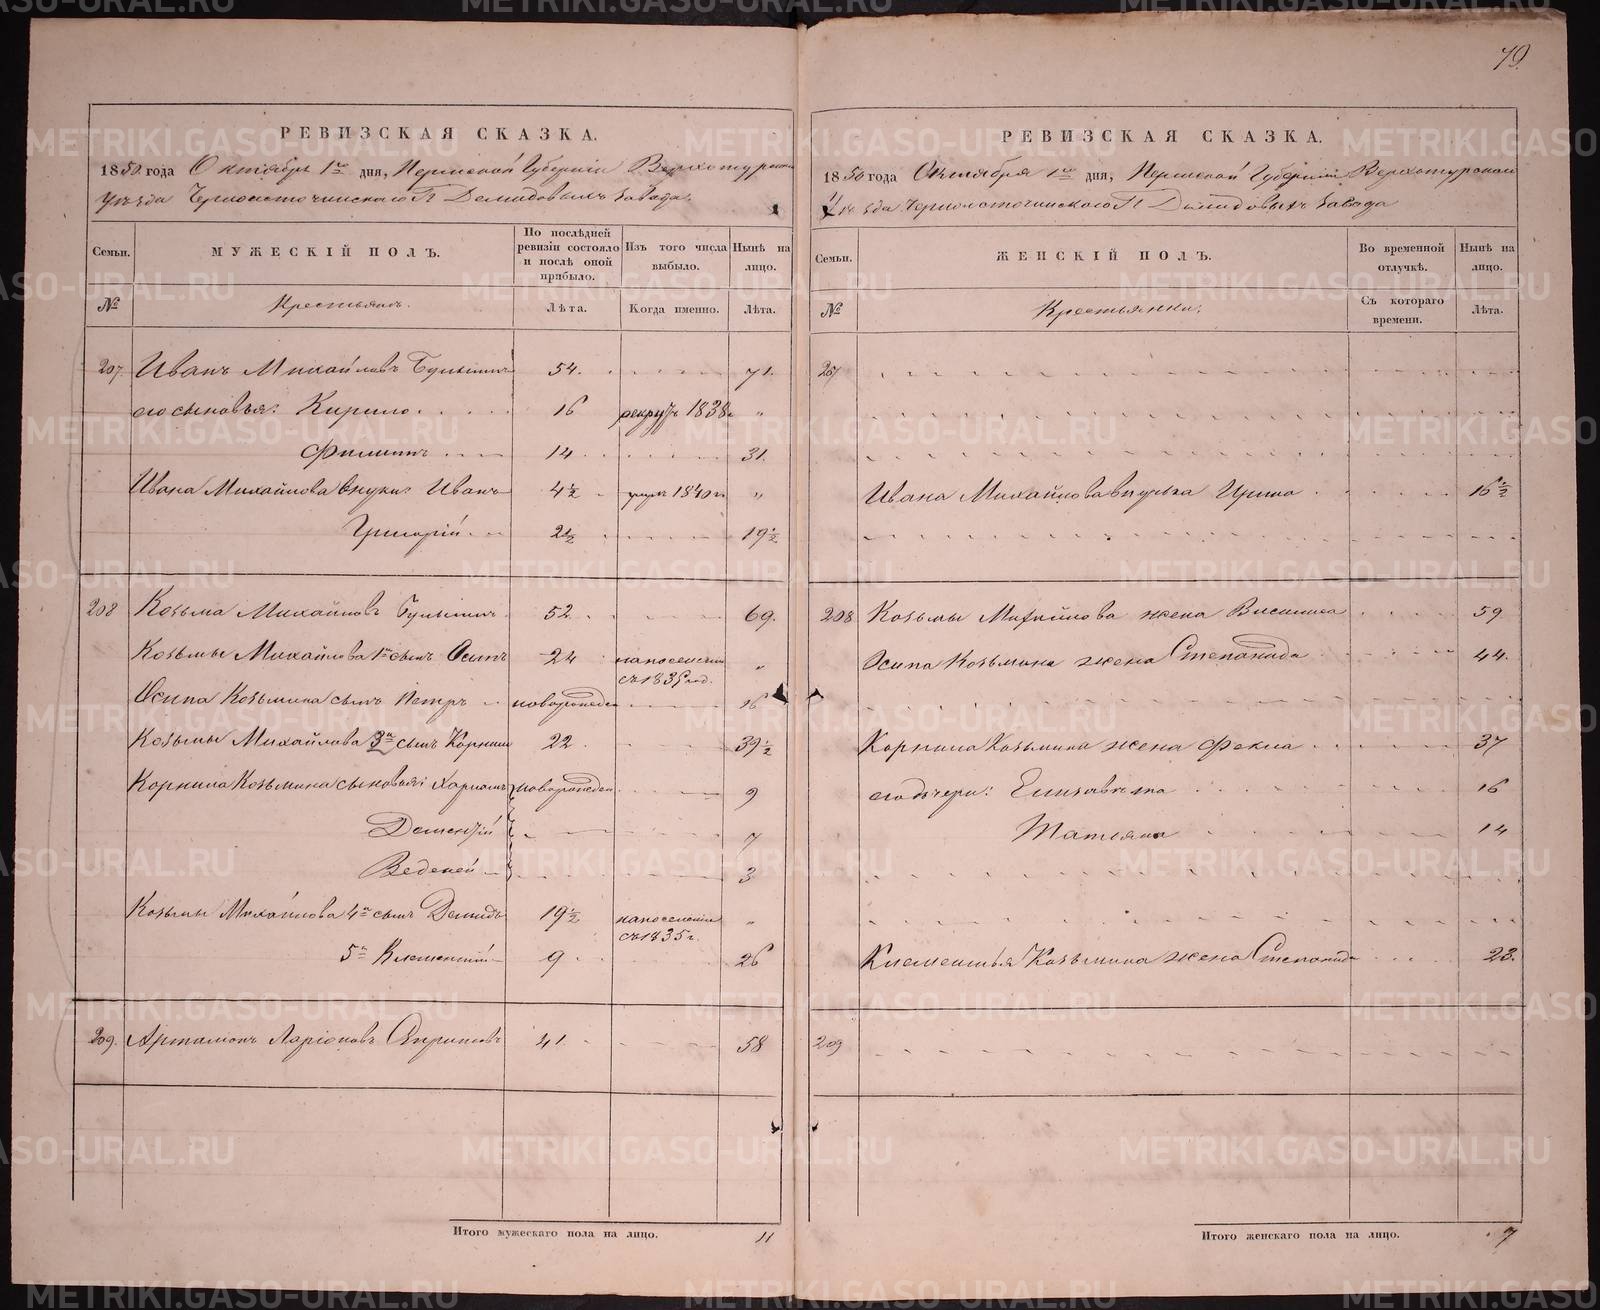 79.
РЕВИЗСКАЯ СКАЗКА.
1850 года Октября 1го дня, Пермской Губерніи Верхотурскаго
уѣзда Черноисточинскаго П Демидовыхъ Завода.
Семьи.
МУЖЕСКІЙ ПОЛЪ.
По послѣдней ревизіи состояло и послѣ оной прибыло.
Изъ того числа выбыло.
Нынѣ на лицо.
№
Крестьянъ.
Лѣта.
Когда именно.
Лѣта.
207. Иванъ Михайловъ 54. 71.
его сыновья: Кирило 16 рекрутъ 1838 „
Филиппъ 14 31.
Ивана Михайлова внуки: Иванъ 4½ умре 1840 г „
Григорій 2½ 19½
208 Козьма Михайловъ 52. 69.
Козьмы Михайлова 1й сынъ Осипъ 24 на поселеніи „
съ 1835 год.
Осипа Козьмина сынъ Петръ новорожден 16
Козьмы Михайлова 3й сынъ Корнило 22 39½
Корнила Козьмина сыновья: Харламъ новорожден 9
Дементій 7
Веденей 3
Козьмы Михайлова 4й сынъ Демидъ 19½ на поселеніи „
съ 1835 г.
5й Клементій 9 26
209. Артамонъ Ларіоновъ 41 58
Итого мужескаго пола на лицо. 11
РЕВИЗСКАЯ СКАЗКА.
1850 года Октября 1го дня, Пермской Губерніи Верхотурскаго
Уѣзда Черноисточинскаго П Демидовыхъ Завода
Семьи.
ЖЕНСКІЙ ПОЛЪ.
Во временной отлучкѣ.
Нынѣ на лицо.
№
Крестьянки.
Съ котораго времени.
Лѣта.
207
Ивана Михайлова внучка Ирина 16½
208 Козьмы Михайлова жена Василиса 59
Осипа Козьмина жена Степанида 44.
Корнила Козьмина жена Фекла 37
его дочери: Елизавета 16
Татьяна 14
Клементья Козьмина жена Степанида 23.
209
Итого женскаго пола на лицо. 7